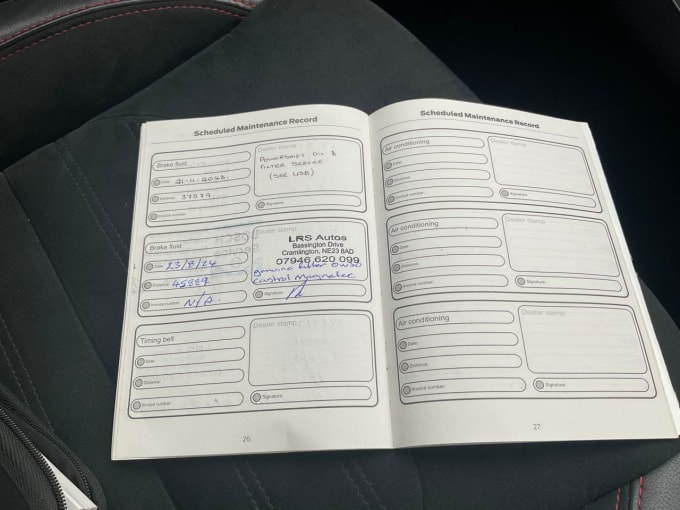 Scheduled Maintenance Record
Brake fluid
Dealer stamp
Date 21.4.2023.
Distance 37579
Invoice number
POWERSHIFT OIL &
FILTER SERVICE
(SEE USB)
Signature
Brake fluid
Dealer stamp
Date 23/8/24
Distance 45889
Invoice number N/A.
LRS Autos
Bassington Drive
Cramlington, NE23 8AD
07946 620 099
genuine filter 0W30
Castrol Magnatec
Signature
Timing belt
Dealer stamp
Date
Distance
Invoice number
Signature
26
Scheduled Maintenance Record
Air conditioning
Dealer stamp
Date
Distance
Invoice number
Signature
Air conditioning
Dealer stamp
Date
Distance
Invoice number
Signature
Air conditioning
Dealer stamp
Date
Distance
Invoice number
Signature
27